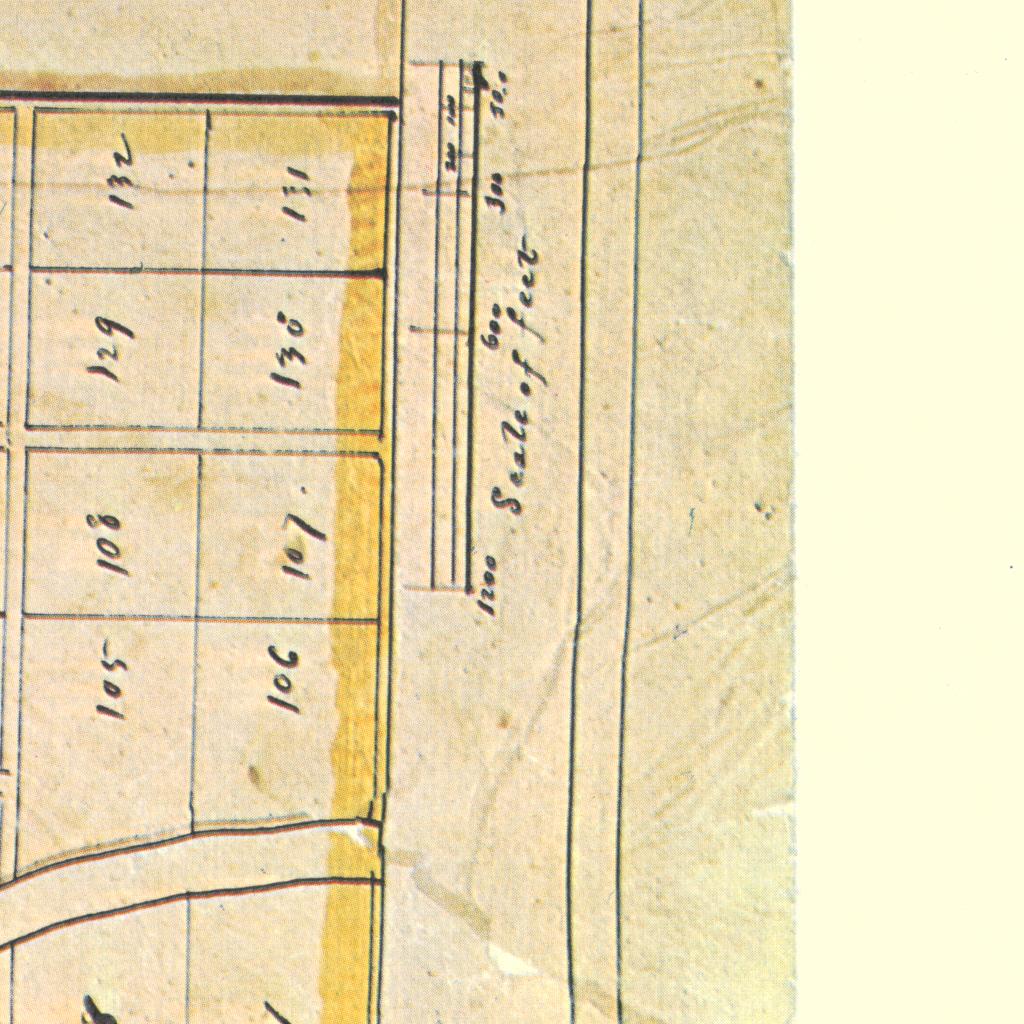 132
131
129
130
108
107
105
106
200 100
300
600
1200
Scale of feet